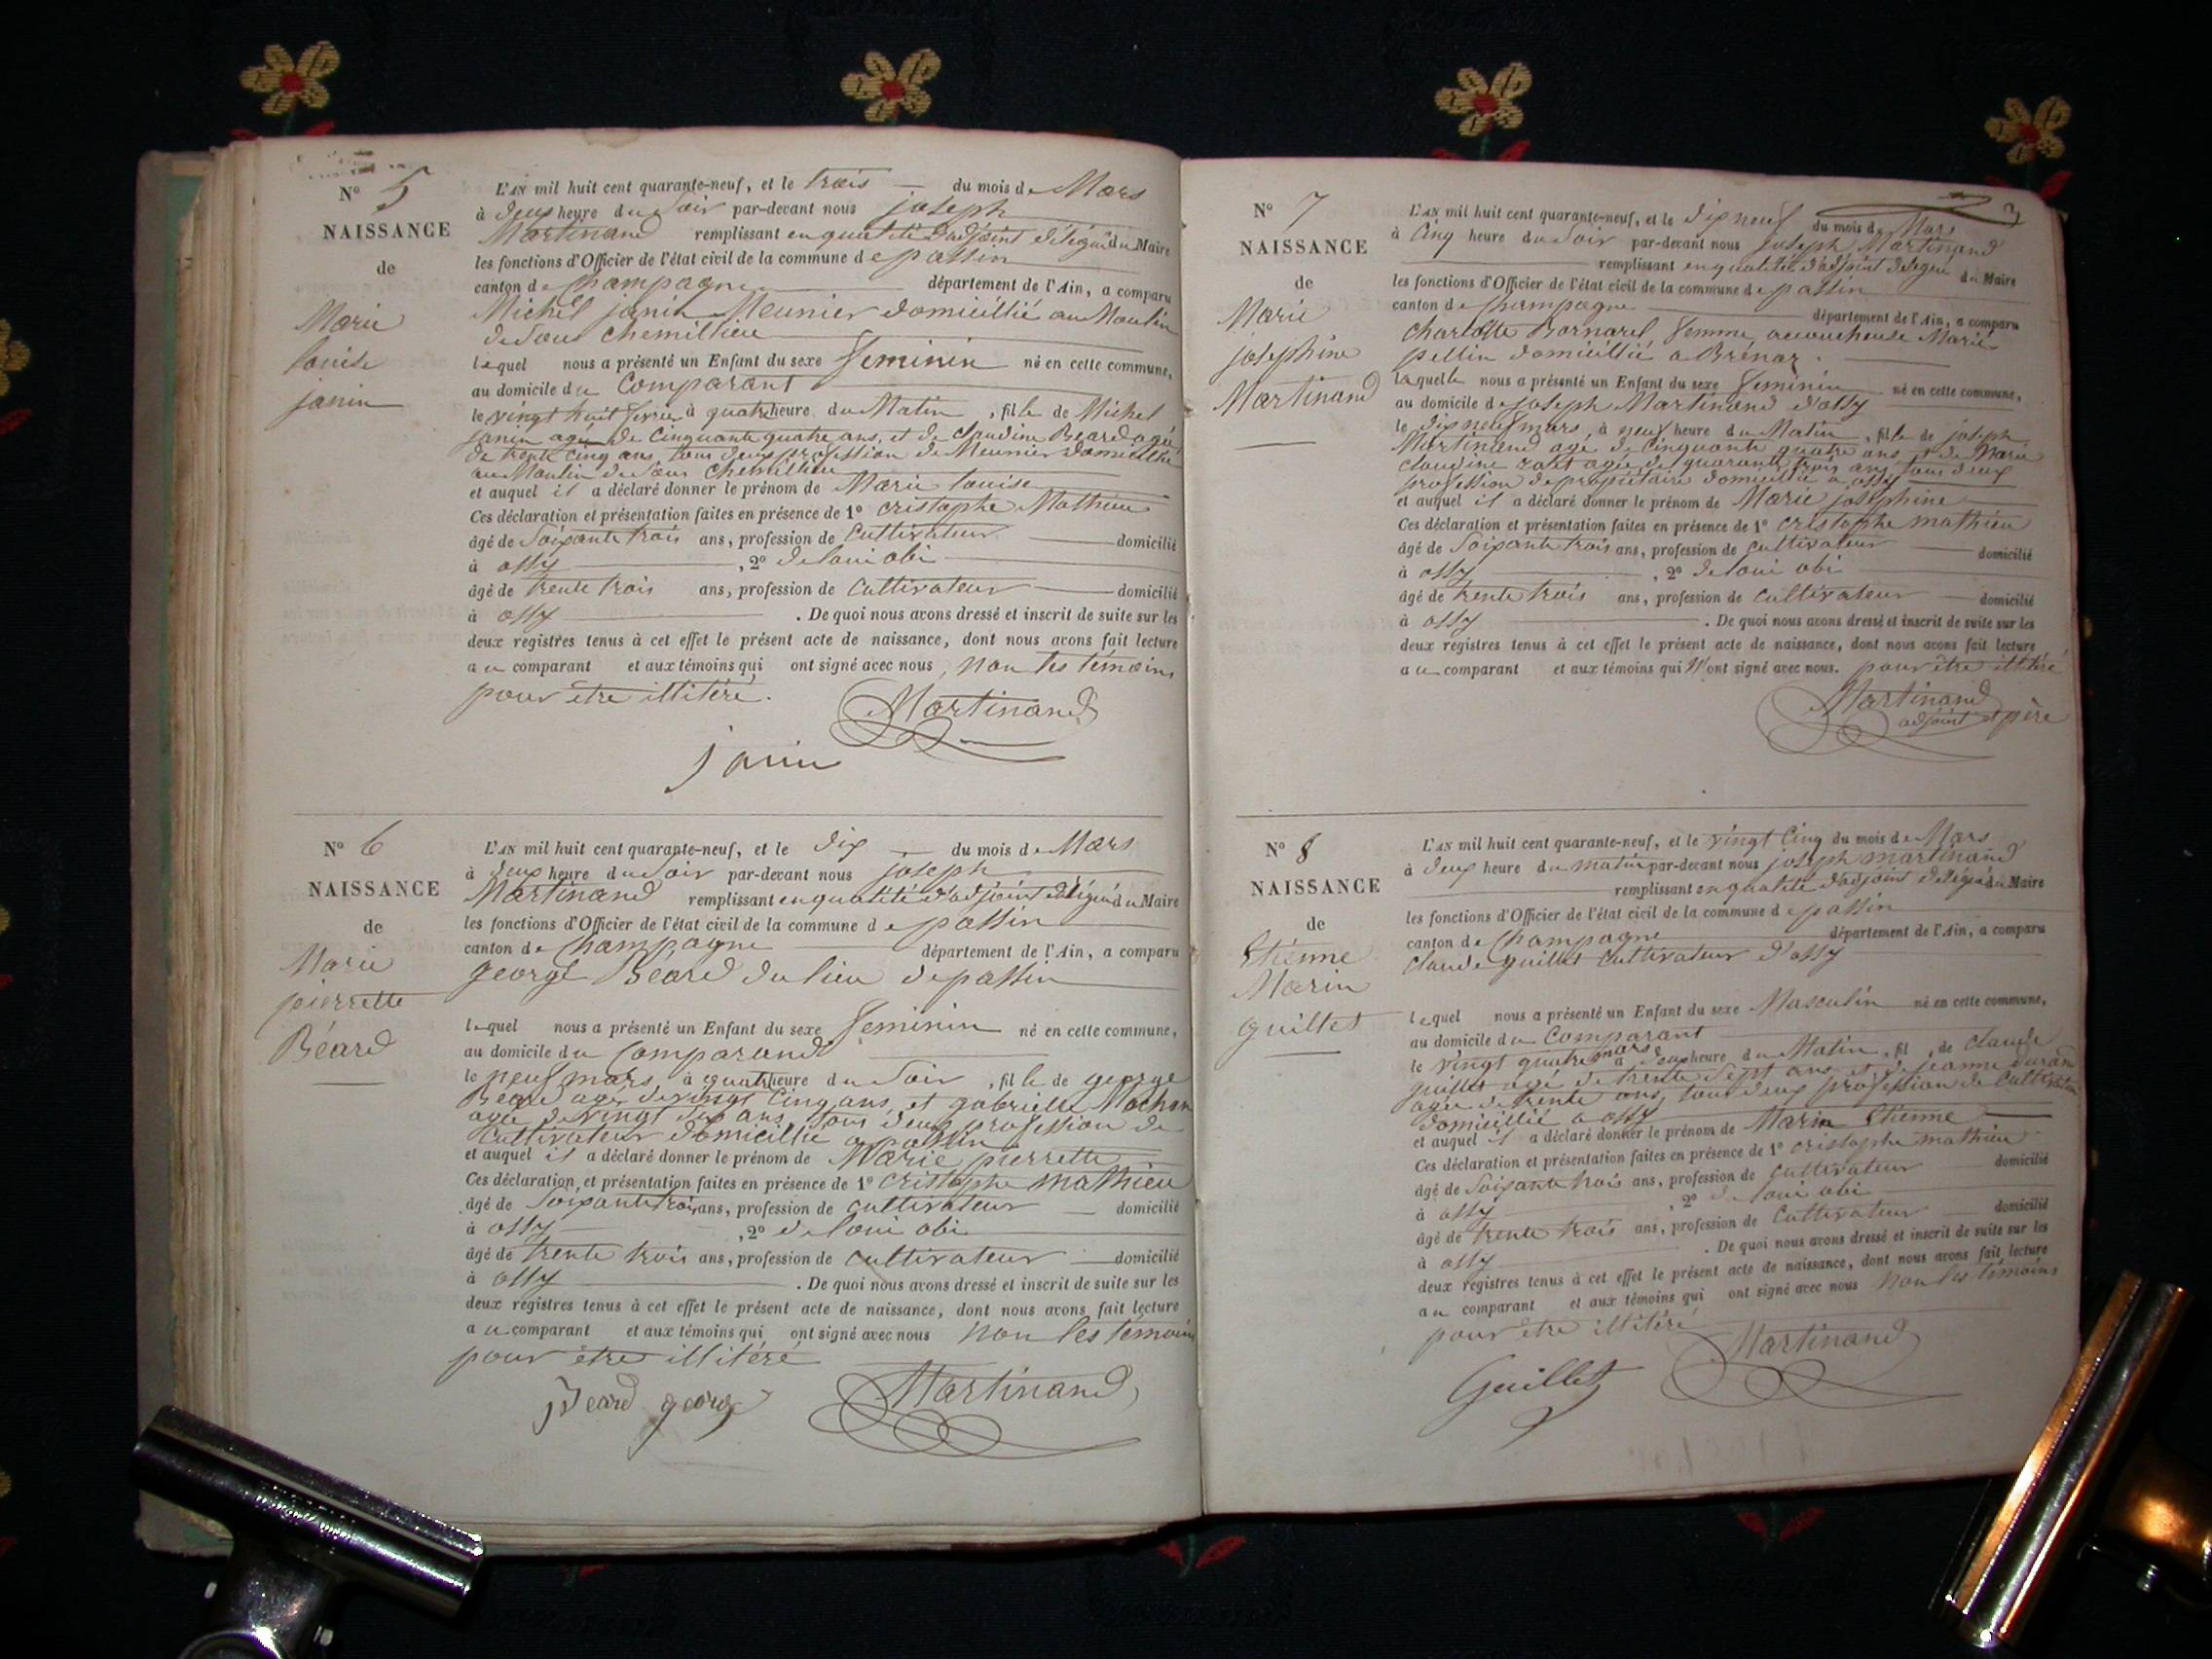 N° 5
NAISSANCE
de
Marie
louise
janin
L'AN mil huit cent quarante-neuf, et le trois du mois de Mars
à deux heure du Soir par-devant nous joseph
Martinand remplissant en qualité d'adjoint délégué du Maire
les fonctions d'Officier de l'état civil de la commune de passin
canton de Champagne département de l'Ain, a comparu
Michel janin Meunier domicillié au Moulin
de Sous Chemillieu
lequel nous a présenté un Enfant du sexe feminin né en cette commune,
au domicile du Comparant
le vingt huit fevrier à quatre heure du Matin, fille de Michel
janin agé de Cinquante quatre ans, et de Claudine Beard agée
de trente Cinq ans tous deux profession de Meunier domicillié
au Moulin de Sous Chemillieu
et auquel il a déclaré donner le prénom de Marie louise
Ces déclaration et présentation faites en présence de 1° Cristophe Mathieu
âgé de Soixante trois ans, profession de Cultivateur domicilié
à ossy, 2° deloui obi
âgé de trente trois ans, profession de Cultivateur domicilié
à ossy. De quoi nous avons dressé et inscrit de suite sur les
deux registres tenus à cet effet le présent acte de naissance, dont nous avons fait lecture
au comparant et aux témoins qui ont signé avec nous, non les témoins
pour être illitéré.
Martinand
janin
N° 6
NAISSANCE
de
Marie
pierrette
Béard
L'AN mil huit cent quarante-neuf, et le dix du mois de Mars
à deux heure du Soir par-devant nous joseph
Martinand remplissant en qualité d'adjoint délégué du Maire
les fonctions d'Officier de l'état civil de la commune de passin
canton de Champagne département de l'Ain, a comparu
george Béard du lieu de passin
lequel nous a présenté un Enfant du sexe feminin né en cette commune,
au domicile du Comparand
le neuf mars, à quatre heure du Soir, fille de george
Béard agé de vingt Cinq ans, et gabrielle Mochon
agée de vingt deux ans, tous deux profession de
Cultivateur domicillié a passin
et auquel il a déclaré donner le prénom de Marie pierrette
Ces déclaration et présentation faites en présence de 1° Cristophe Mathieu
âgé de Soixante trois ans, profession de Cultivateur domicilié
à ossy, 2° deloui obi
âgé de trente trois ans, profession de Cultivateur domicilié
à ossy. De quoi nous avons dressé et inscrit de suite sur les
deux registres tenus à cet effet le présent acte de naissance, dont nous avons fait lecture
au comparant et aux témoins qui ont signé avec nous non les temoins
pour être illitéré
Beard george Martinand
3
N° 7
NAISSANCE
de
Marie
josephine
Martinand
L'AN mil huit cent quarante-neuf, et le dix neuf du mois de Mars
à Cinq heure du Soir par-devant nous joseph Martinand
remplissant en qualité d'adjoint delegué du Maire
les fonctions d'Officier de l'état civil de la commune de passin
canton de Champagne département de l'Ain, a comparu
Charlotte Bornarel femme accoucheuse Marié
pellin domicillié a Brénaz.
laquelle nous a présenté un Enfant du sexe feminin né en cette commune,
au domicile de joseph Martinand d'ossy
le dix neuf mars, à neuf heure du Matin, fille de joseph
Martinand agé de Cinquante quatre ans et de Marie
Claudine agée de quarante trois ans tous deux
profession de propiétaire domicillié a ossy
et auquel il a déclaré donner le prénom de Marie josephine
Ces déclaration et présentation faites en présence de 1° Cristophe mathieu
âgé de Soixante trois ans, profession de Cultivateur domicilié
à ossy, 2° deloui obi
âgé de trente trois ans, profession de Cultivateur domicilié
à ossy. De quoi nous avons dressé et inscrit de suite sur les
deux registres tenus à cet effet le présent acte de naissance, dont nous avons fait lecture
au comparant et aux témoins qui N'ont signé avec nous. pour être illitéré
Martinand
adjoint et père
N° 8
NAISSANCE
de
Etienne
Marin
guillet
L'AN mil huit cent quarante-neuf, et le vingt Cinq du mois de Mars
à deux heure du matin par-devant nous joseph martinand
remplissant en qualité d'adjoint délégué du Maire
les fonctions d'Officier de l'état civil de la commune de passin
canton de Champagne département de l'Ain, a comparu
claude guillet Cultivateur d'ossy
lequel nous a présenté un Enfant du sexe Masculin né en cette commune,
au domicile du Comparant
le vingt quatre mars à deux heure du Matin, fil de claude
guillet agé de trente Sept ans et de jeanne durand
agée de trente ans, tous deux profession de Cultivateur
domicillié a ossy
et auquel il a déclaré donner le prénom de Marin Etienne
Ces déclaration et présentation faites en présence de 1° Cristophe mathieu
âgé de Soixante trois ans, profession de Cultivateur domicilié
à ossy, 2° deloui obi
âgé de trente trois ans, profession de Cultivateur domicilié
à ossy. De quoi nous avons dressé et inscrit de suite sur les
deux registres tenus à cet effet le présent acte de naissance, dont nous avons fait lecture
au comparant et aux témoins qui ont signé avec nous Non les témoins
pour être illitéré
Guillet Martinand